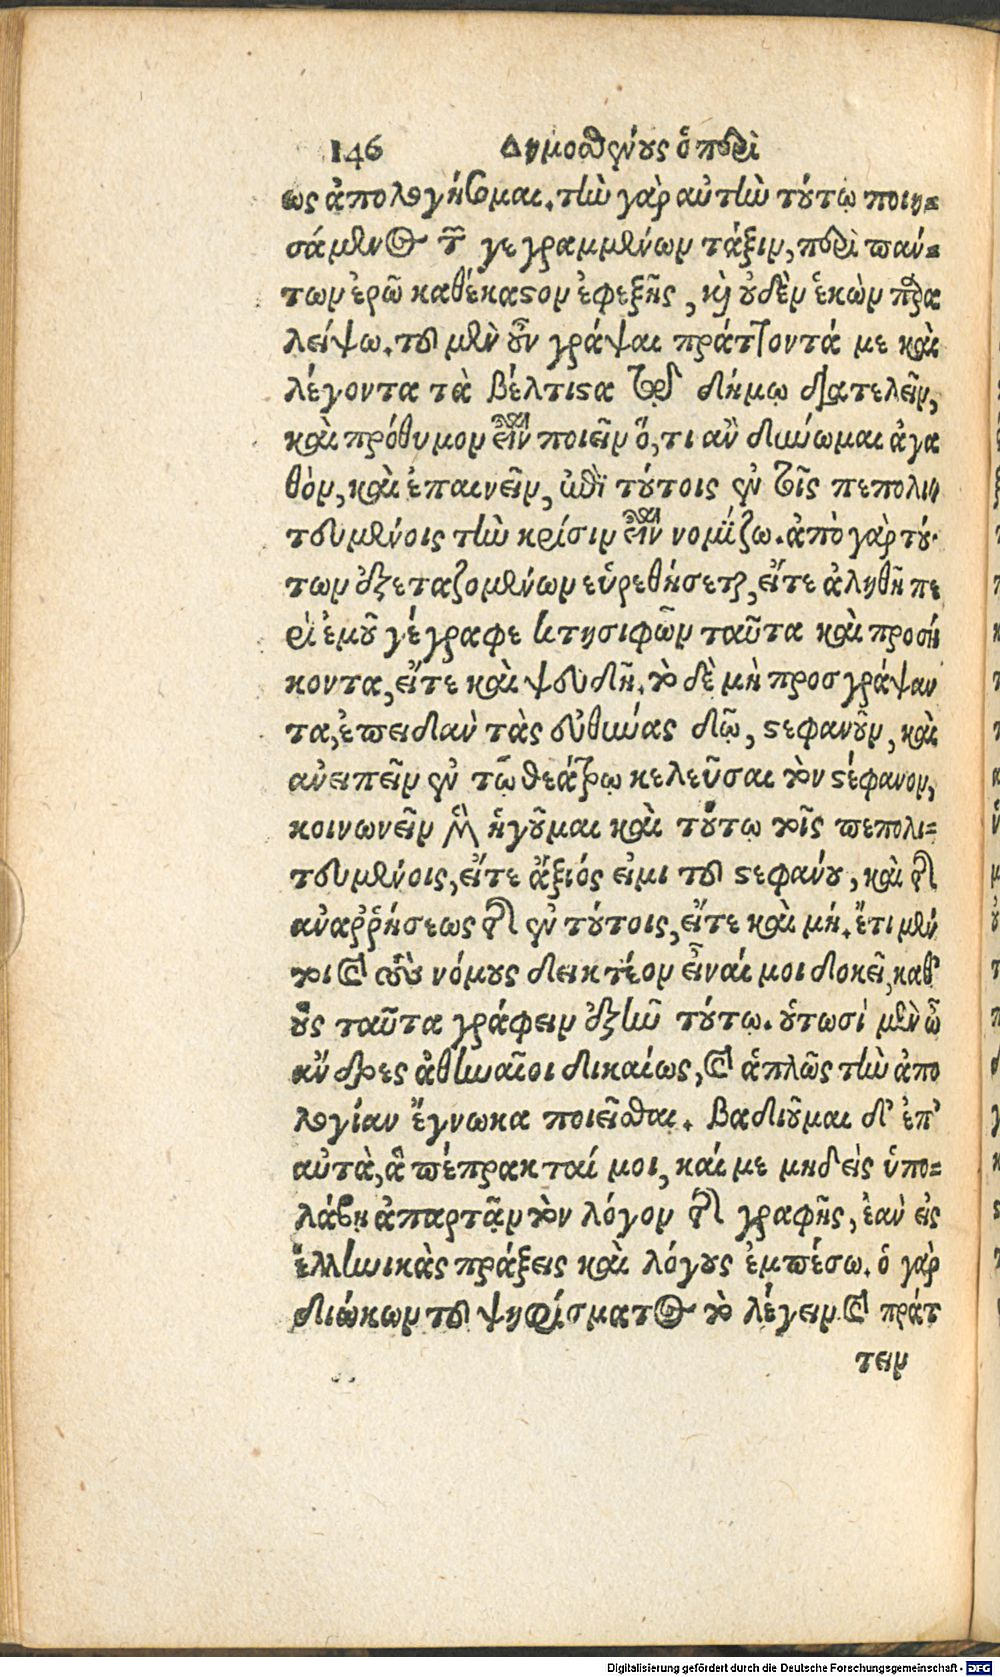 146 Δημοσθένους ὁ περὶ
ως ἀπολογήσομαι. τὴν γὰρ αὐτὴν τούτῳ ποιη-
σάμενος τῶν γεγραμμένων τάξιν, περὶ πάν-
των ἐρῶ καθέκαστον ἐφεξῆς, καὶ οὐδὲν ἑκὼν παρα
λείψω. τοῦ μὲν οὖν γράψαι πράττοντά με καὶ
λέγοντα τὰ βέλτιστα τῷ δήμῳ διατελεῖν,
καὶ πρόθυμον εἶναι ποιεῖν ὅ, τι ἂν δύνωμαι ἀγα
θὸν, καὶ ἐπαινεῖν, ἐπὶ τούτοις ἐν τοῖς πεπολι
τευμένοις τὴν κρίσιν εἶναι νομίζω. ἀπὸ γὰρ τού-
των ἐξεταζομένων εὑρεθήσεται, εἴτε ἀληθῆ πε
ρὶ ἐμοῦ γέγραφε κτησιφῶν ταῦτα καὶ προσή
κοντα, εἴτε καὶ ψευδῆ. τὸ δὲ μὴ προσγράψαν
τα, ἐπειδὰν τὰς εὐθύνας δῶ, στεφανοῦν, καὶ
ἀνειπεῖν ἐν τῷ θεάτρῳ κελεῦσαι τὸν στέφανον,
κοινωνεῖν μὲν ἡγοῦμαι καὶ τοῦτο τοῖς πεπολι-
τευμένοις, εἴτε ἄξιός εἰμι τοῦ στεφάνου, καὶ τῆς
ἀναῤῥήσεως τῆς ἐν τούτοις, εἴτε καὶ μή. ἔτι μέν
τοι καὶ τοὺς νόμους δεικτέον εἶναί μοι δοκεῖ, καθ'
οὓς ταῦτα γράφειν ἐξῆν τούτῳ. οὑτωσὶ μὲν ὦ
ἄνδρες ἀθηναῖοι δικαίως, καὶ ἁπλῶς τὴν ἀπο
λογίαν ἔγνωκα ποιεῖσθαι. βαδιοῦμαι δ' ἐπ'
αὐτὰ, ἃ πέπρακταί μοι, καί με μηδεὶς ὑπο-
λάβῃ ἀπαρτᾷν τὸν λόγον τῆς γραφῆς, ἐὰν εἰς
ἑλληνικὰς πράξεις καὶ λόγους ἐμπέσω. ὁ γὰρ
διώκων τοῦ ψηφίσματος τὸ λέγειν καὶ πράτ
τειν
Digitalisierung gefördert durch die Deutsche Forschungsgemeinschaft - DFG